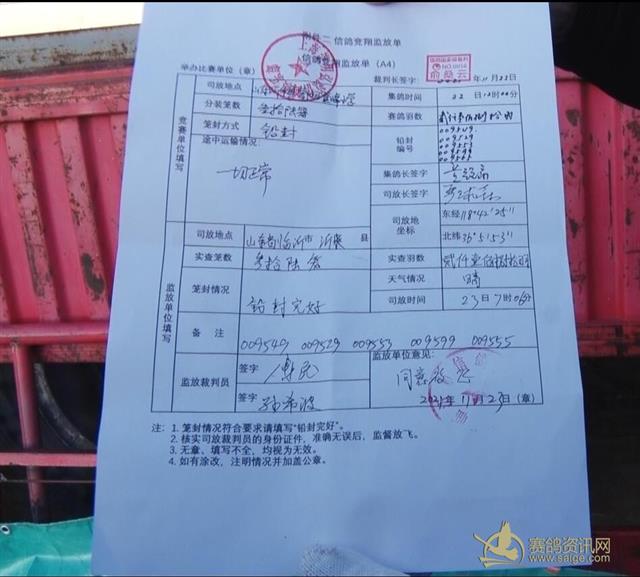 附件二 信鸽竞翔监放单
信鸽竞翔监放单（A4）
举办比赛单位（章） 裁判长签字： 年11月22日
NO.0058
俞茂云
竞赛单位填写
司放地点
集鸽时间 22日12时00分
分装笼数 叁拾陆笼
赛鸽羽数
笼封方式 铅封
铅封编号
009549.
009529
009553
009599
009555
途中运输情况：
一切正常
集鸽长签字
司放长签字
司放地坐标
东经118°42′25″
北纬36°5′53″
监放单位填写
司放地点 山东省临沂市 沂 县
实查笼数 叁拾陆笼
实查羽数
笼封情况 铅封完好
天气情况 晴
司放时间 23日7时06分
备 注 009549 009529 009553 009599 009555
监放裁判员
签字
签字 孙希波
监放单位意见：
同意放飞
2021年11月23日（章）
注：1. 笼封情况符合要求请填写“铅封完好”。
2. 核实司放裁判员的身份证件，准确无误后，监督放飞。
3. 无章、填写不全，均视为无效。
4. 如有涂改，注明情况并加盖公章。
赛鸽资讯网
www.saige.com